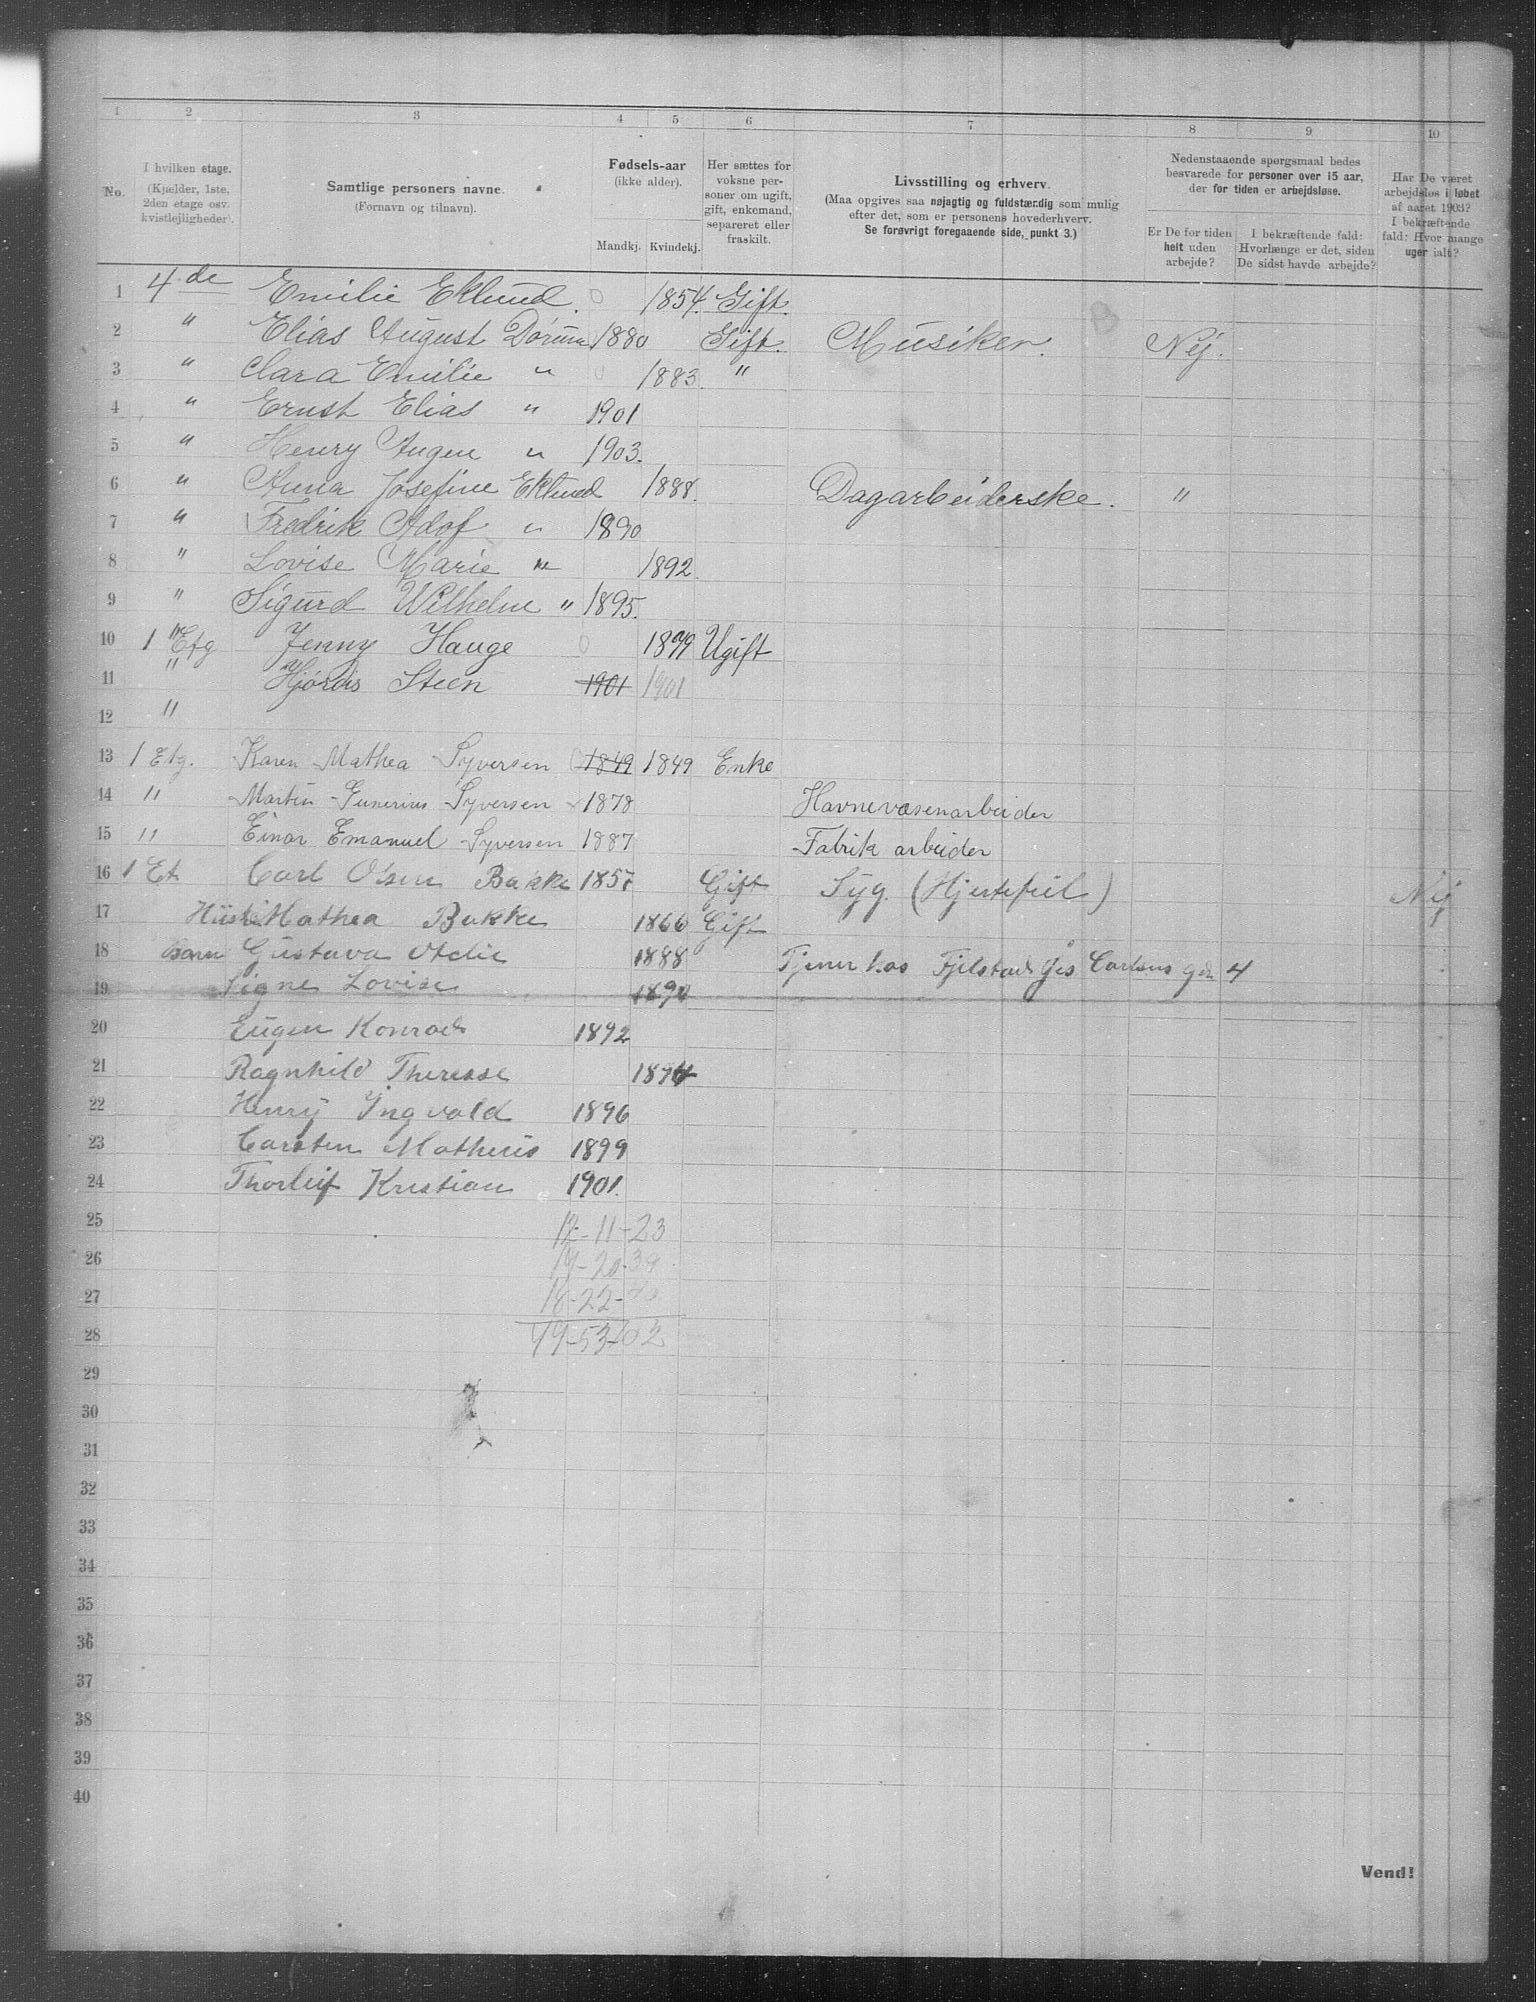 1 2 3 4 5 6 7 8 9 10
No.
I hvilken etage.
(Kjælder, 1ste,
2den etage osv.
kvistlejligheder).
Samtlige personers navne.
(Fornavn og tilnavn).
Fødsels-aar
(ikke alder).
Mandkj. Kvindekj.
Her sættes for
voksne per-
soner om ugift,
gift, enkemand,
separeret eller
fraskilt.
Livsstilling og erhverv.
(Maa opgives saa nøjagtig og fuldstændig som mulig
efter det, som er personens hovederhverv.
Se forøvrigt foregaaende side, punkt 3.)
Nedenstaaende spørgsmaal bedes
besvarede for personer over 15 aar,
der for tiden er arbejdsløse.
Er De for tiden
helt uden
arbejde?
I bekræftende fald:
Hvorlænge er det, siden
De sidst havde arbejde?
Har De været
arbejdsløs i løbet
af aaret 1903?
I bekræftende
fald: Hvor mange
uger ialt?
1 4de Emilie Eklund. 0 1854. Gift.
2 " Elias August Dørum 1880 Gift. Musiker. Nej.
3 " Clara Emilie " 0 1883. "
4 " Ernst Elias " 1901
5 " Henry Augen " 1903.
6 " Anna Josefine Eklund 1888. Dagarbeiderske. "
7 " Fredrik Adof " 1890
8 " Lovise Marie " 1892
9 " Sigurd Wilhelm " 1895.
10 1 Etg Jenny Hauge 0 1879 Ugift
11 " Hjørdis Steen 1901 1901
12 "
13 1 Etg. Karen Mathea Syversen 1849 1849 Enke
14 " Martin Gunerius Syversen 1878 Havnevæsenarbeider
15 " Einar Emanuel Syversen 1887 Fabrik arbeider
16 1 Et Carl Olsen Bakke 1857 Gift Syg. (Hjertefeil) Nej
17 Mathea Bakke 1866 Gift
18 Børn Gustava Adelie 1888 Tjener hos Fjelstad Carlsens gd 4
19 Signe Lovise 1890
20 Eugen Konrad 1892
21 Ragnhild Theresse
22 Henry Ingvald 1896
23 Carsten Matheus 1899
24 Thorleif Kristian 1901.
25 12-11-23
26 19-20-39
27 18-22-40
28 49-53-102
29
30
31
32
33
34
35
36
37
38
39
40
Vend!